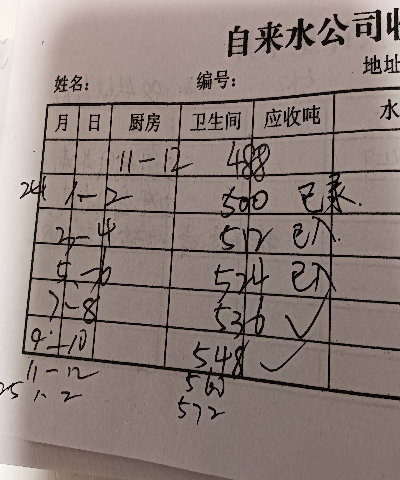 自来水公司收
地址
姓名: 编号:
月 日 厨房 卫生间 应收吨 水
11-12 488
24 1-2 500 已录
3-4 512 已入
5-6 524 已入
7-8 536 ✓
9-10 548 ✓
11-12 560
25 1-2 572